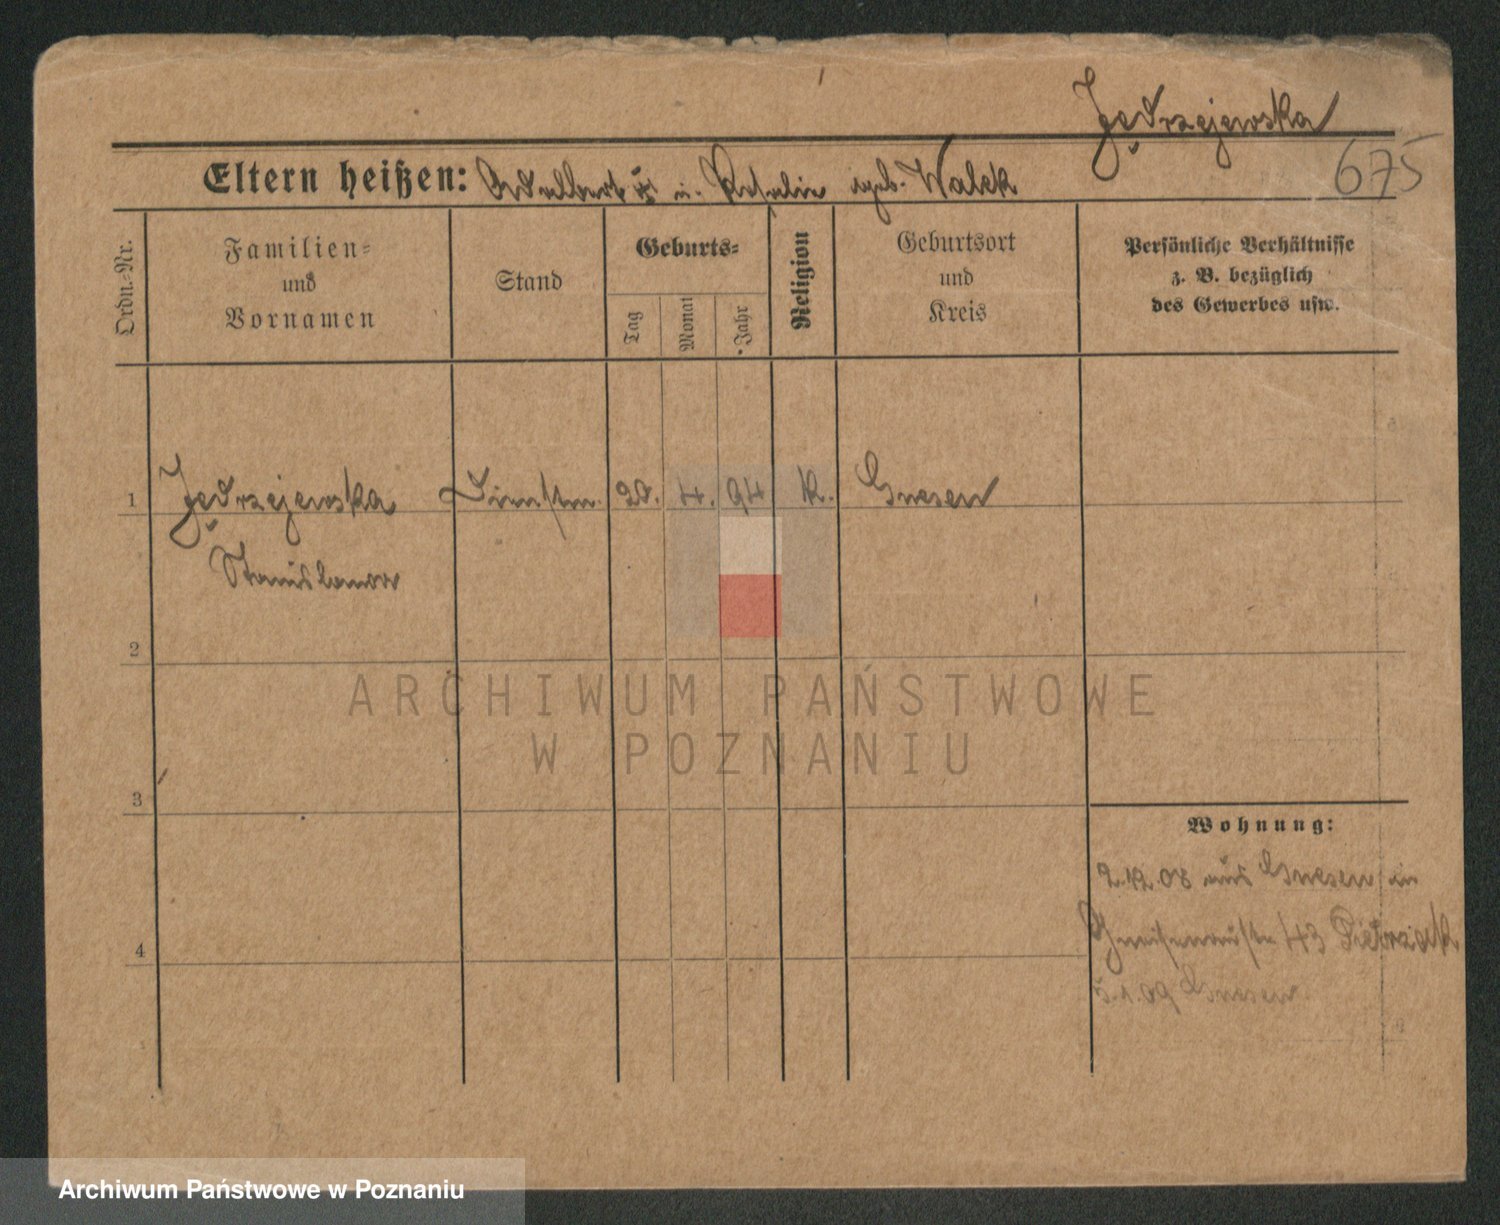 Jędrzejewska
675
Eltern heißen: Adalbert u. Rosalie geb. Walek
Ordn.-Nr.
Familien-
und
Vornamen
Stand
Geburts-
Tag
Monat
Jahr
Religion
Geburtsort
und
Kreis
Persönliche Verhältnisse
z. B. bezüglich
des Gewerbes usw.
1 Jędrzejewska Dienstm. 20. 4. 94 k. Gnesen
Stanislawa
2
ARCHIWUM PAŃSTWOWE
W POZNANIU
3
Wohnung:
2.12.08 aus Gnesen in
Gneisenaustr 43 Pietrziak
4
5.1.09 Gnesen
Archiwum Państwowe w Poznaniu